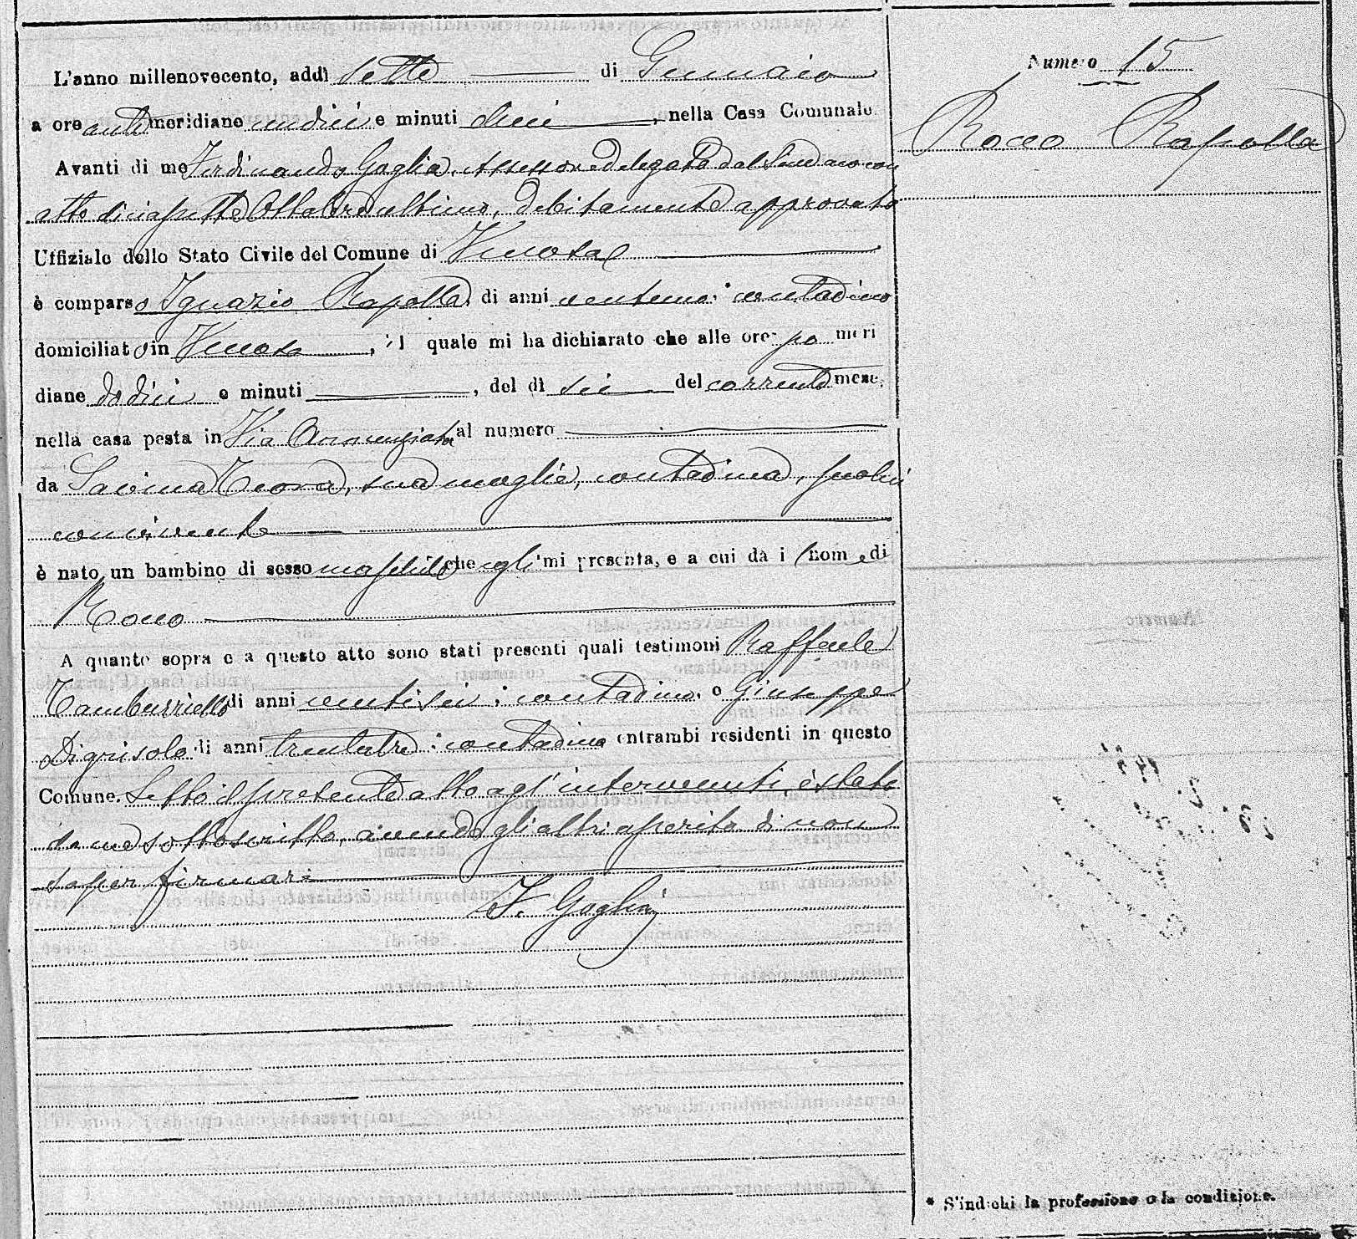 Numero 15
Rocco Rapolla
L'anno millenovecento, addì sette di Gennaio
a ore anti meridiane undici e minuti dieci, nella Casa Comunale.
Avanti di me Ferdinando Gaglia, Assessore delegato dal Sindaco con
atto diciassette Ottobre ultimo, debitamente approvato
Uffiziale dello Stato Civile del Comune di Venosa
è comparso Ignazio Rapolla, di anni ventuno, contadino
domiciliato in Venosa, il quale mi ha dichiarato che alle ore po meri
diane dodici e minuti, del dì sei del corrente mese,
nella casa posta in Via Annunziata al numero
da Savina Teora, sua moglie, contadina, seco lui
convivente
è nato un bambino di sesso maschile che egli mi presenta, e a cui dà i l nome di
Rocco
A quanto sopra e a questo atto sono stati presenti quali testimoni Raffaele
Tamburriello di anni ventisei, contadino e Giuseppe
Digrisolo di anni trentatre, contadino entrambi residenti in questo
Comune. Letto il presente atto agl'intervenuti, è stato
da me sottoscritto, avendo gli altri asserito di non
saper firmare
F. Gaglia
* S'indichi la professione o la condizione.